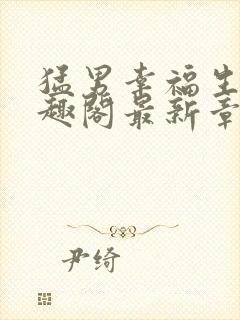 猛男幸福生
趣阁最新章
尹绮